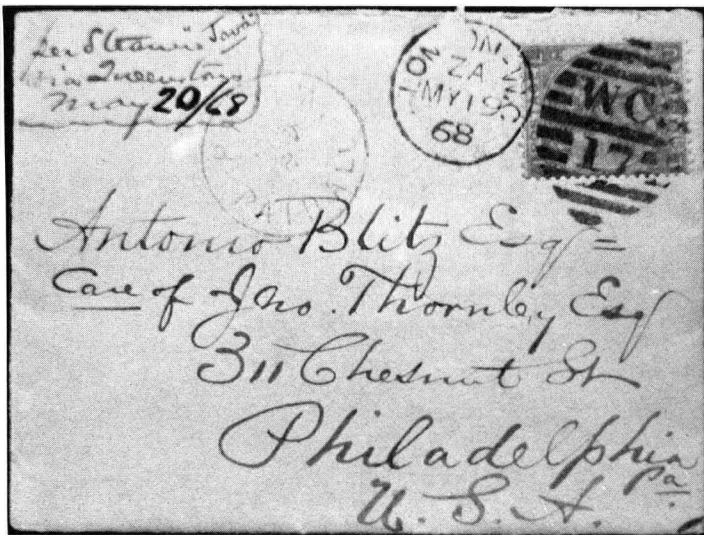 Per Steamer Java
via Queenstown
May 20/68
LONDON-W.C
ZA
MY19
68
WC.
17
PAID
Antonio Blitz Esqr =
Care of Jno. Thornley Esq
311 Chesnut St
Philadelphia
Pa.
U. S. A.